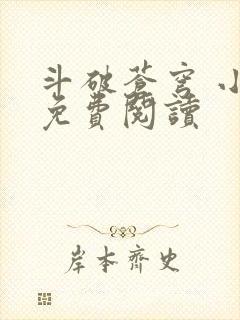 斗破蒼穹 小
免費閱讀
岸本齊史